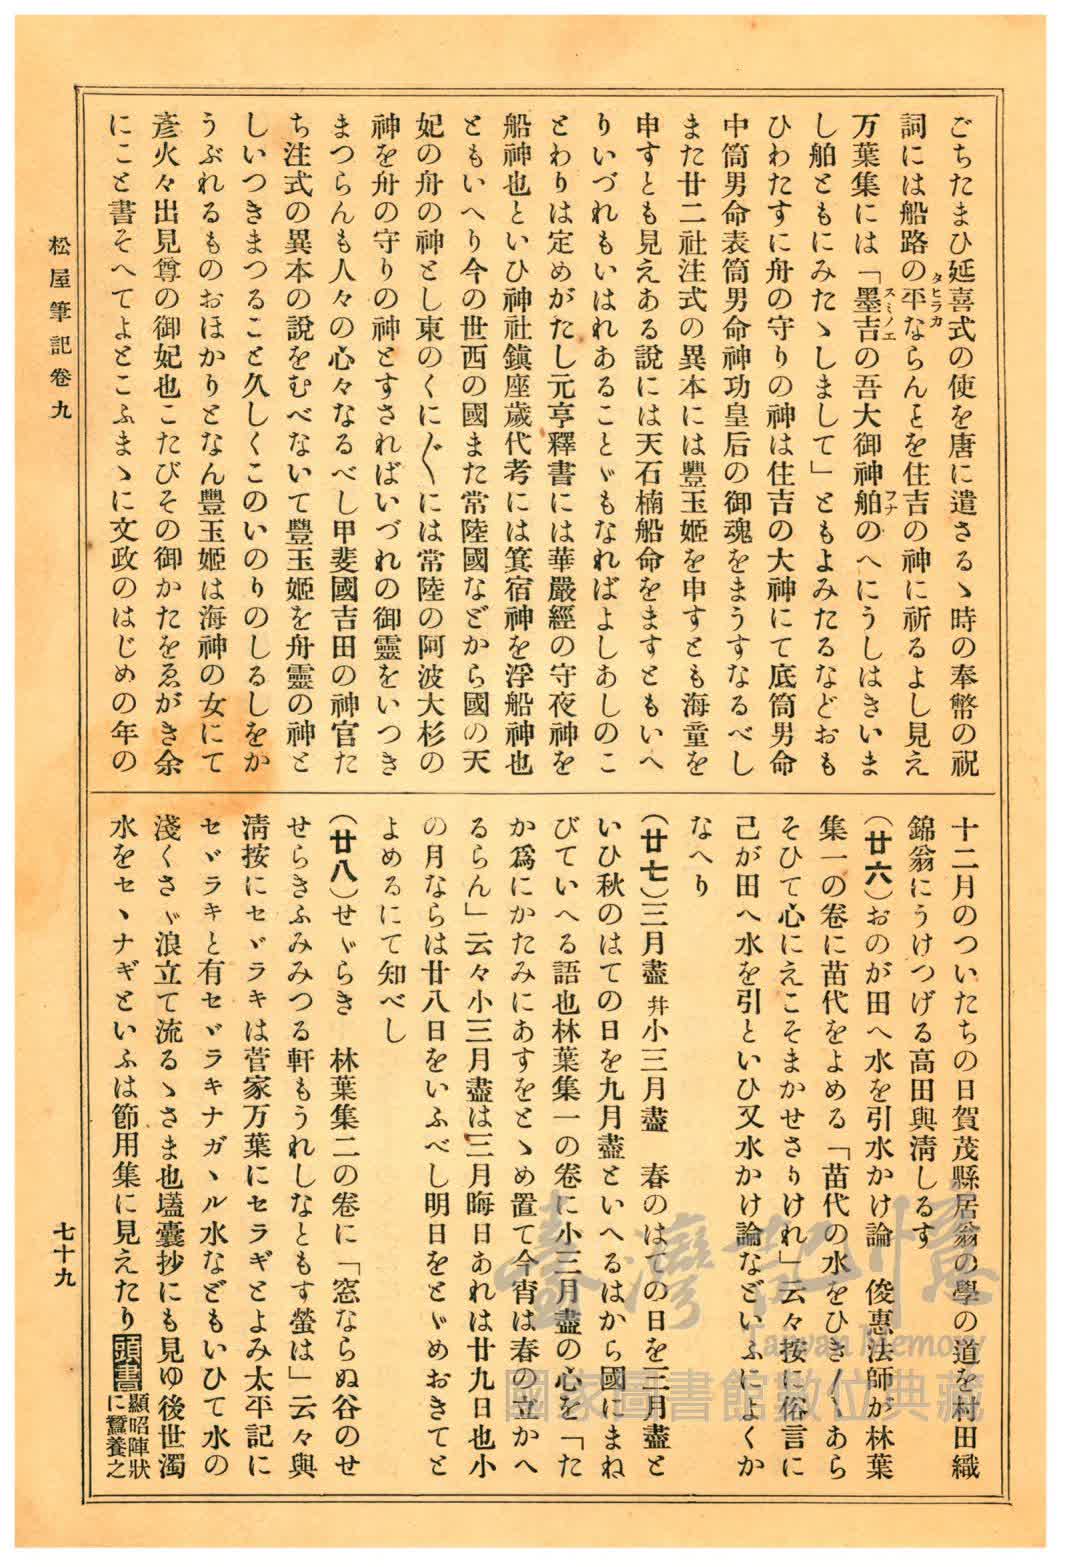 ごちたまひ延喜式の使を唐に遣さるゝ時の奉幣の祝
詞には船路の平ならんとを住吉の神に祈るよし見え
タヒラカ
万葉集には「墨吉の吾大御神舶のへにうしはきいま
スミノエ
フナ
し舶ともにみたゝしまして」ともよみたるなどおも
ひわたすに舟の守りの神は住吉の大神にて底筒男命
中筒男命表筒男命神功皇后の御魂をまうすなるべし
また廿二社注式の異本には豐玉姬を申すとも海童を
申すとも見えある説には天石楠船命をますともいへ
りいづれもいはれあることゞもなればよしあしのこ
とわりは定めがたし元亨釋書には華嚴經の守夜神を
船神也といひ神社鎭座歲代考には箕宿神を浮船神也
ともいへり今の世西の國また常陸國などから國の天
妃の舟の神とし東のくに〲には常陸の阿波大杉の
神を舟の守りの神とすさればいづれの御靈をいつき
まつらんも人々の心々なるべし甲斐國吉田の神官た
ち注式の異本の說をむべないて豐玉姬を舟靈の神と
しいつきまつること久しくこのいのりのしるしをか
うぶれるものおほかりとなん豐玉姬は海神の女にて
彥火々出見尊の御妃也こたびその御かたをゑがき余
にこと書そへてよとこふまゝに文政のはじめの年の
十二月のついたちの日賀茂縣居翁の學の道を村田織
錦翁にうけつげる高田與淸しるす
（廿六）おのが田へ水を引水かけ論　俊惠法師が林葉
集一の卷に苗代をよめる「苗代の水をひき〳〵あら
そひて心にえこそまかせさりけれ」云々按に俗言に
己が田へ水を引といひ又水かけ論などいふによくか
なへり
（廿七）三月盡幷小三月盡　春のはての日を三月盡と
いひ秋のはての日を九月盡といへるはから國にまね
びていへる語也林葉集一の卷に小三月盡の心を「た
か爲にかたみにあすをとゝめ置て今宵は春の立かへ
るらん」云々小三月盡は三月晦日あれは廿九日也小
の月ならは廿八日をいふべし明日をとゞめおきてと
よめるにて知べし
（廿八）せゞらき　林葉集二の卷に「窓ならぬ谷のせ
せらきふみみつる軒もうれしなともす螢は」云々與
淸按にセゞラキは菅家万葉にセラギとよみ太平記に
セゞラキと有セゞラキナガヽル水などもいひて水の
淺くさゞ浪立て流るゝさま也壒囊抄にも見ゆ後世濁
水をセヽナギといふは節用集に見えたり頭書顯昭陣狀
に蠶養之
松屋筆記卷九
七十九
臺灣記憶
Taiwan Memory
國家圖書館數位典藏